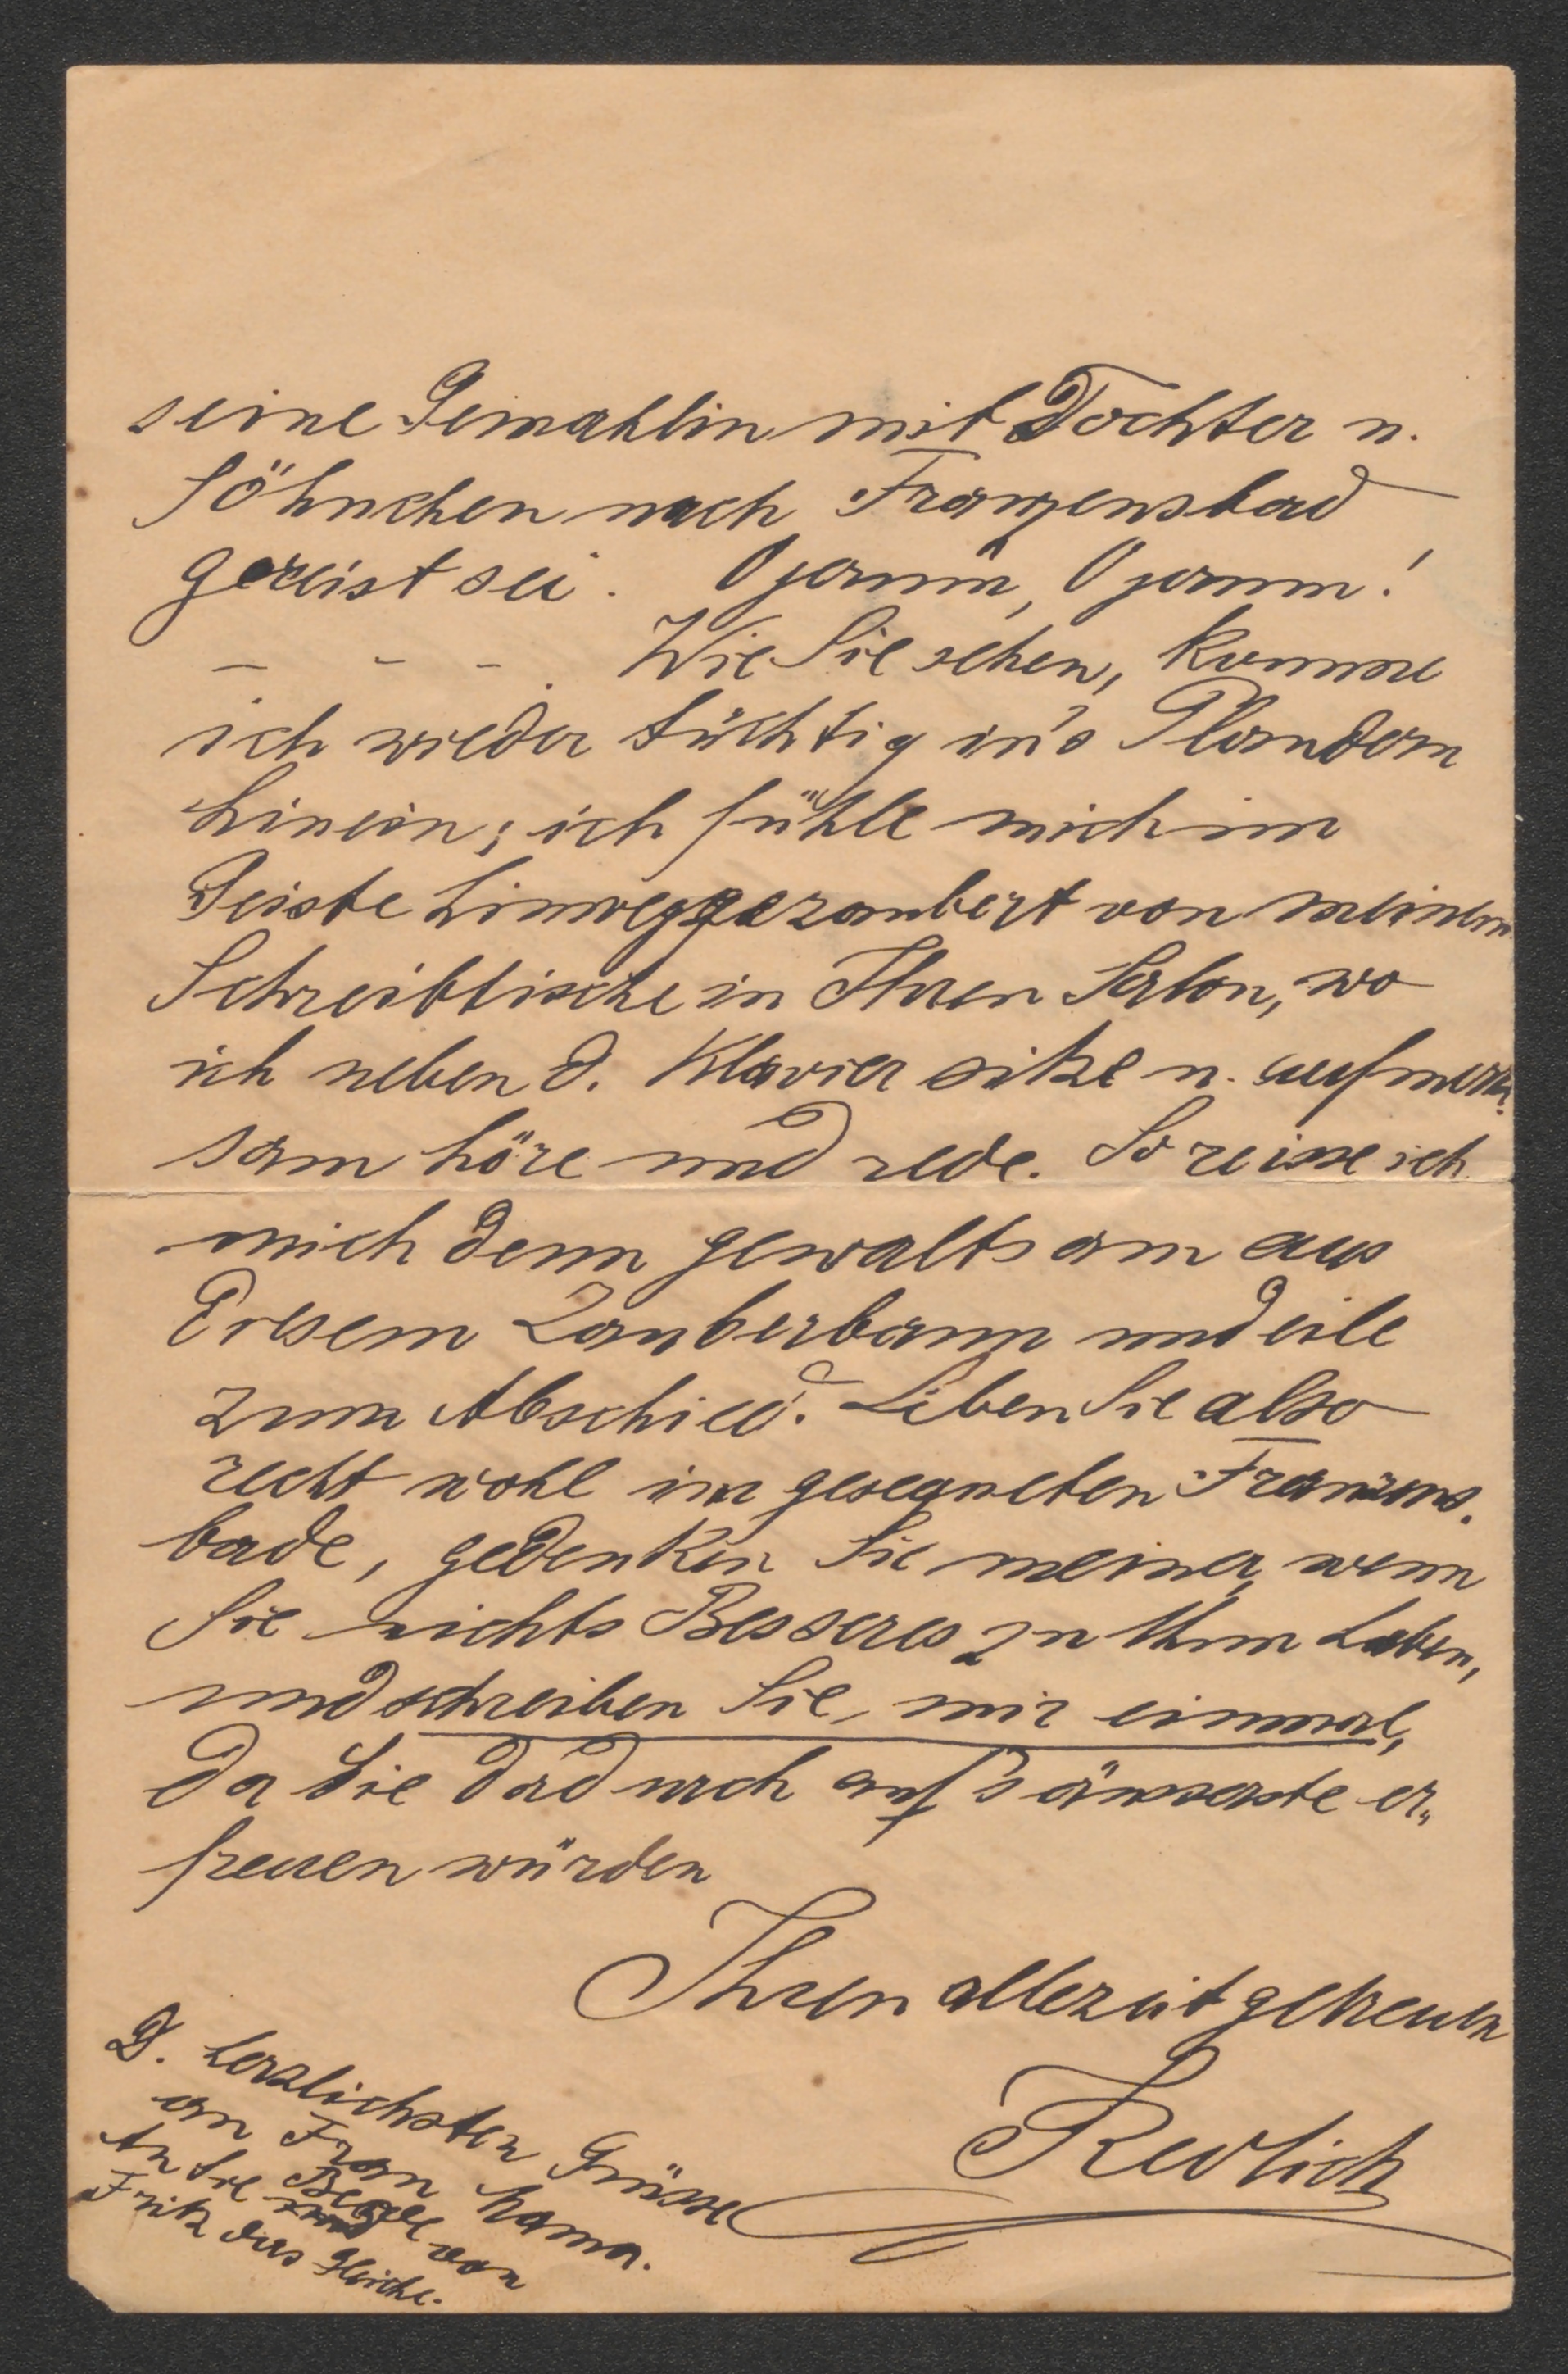 seine Gemahlin mit Tochter u.
Söhnchen nach Franzensbad
gereist sei. O jerum, O jerum!
– – –. Wie Sie sehen, komme
ich wieder tüchtig in's Plaudern
hinein; ich fühle mich im
Geiste hinweggezaubert von meinem
Schreibtische in Ihren Salon, wo
ich neben d. Klavier sitze u. aufmerk-
sam höre und rede. So reisse ich
mich denn gewaltsam aus
diesem Zauberbann und eile
zum Abschied. Leben Sie also
recht wohl im gesegneten Franzens-
bade, gedenken Sie meiner, wenn
Sie nichts Besseres zu thun haben,
und schreiben Sie, mir einmal,
da Sie dadurch auf's äusserste er-
freuen würden
Ihren allezeit getreuen
Redlich
D. herzlichsten Grüsse
an Frau Mama.
An Sie Beide von
Fritz das Gleiche.